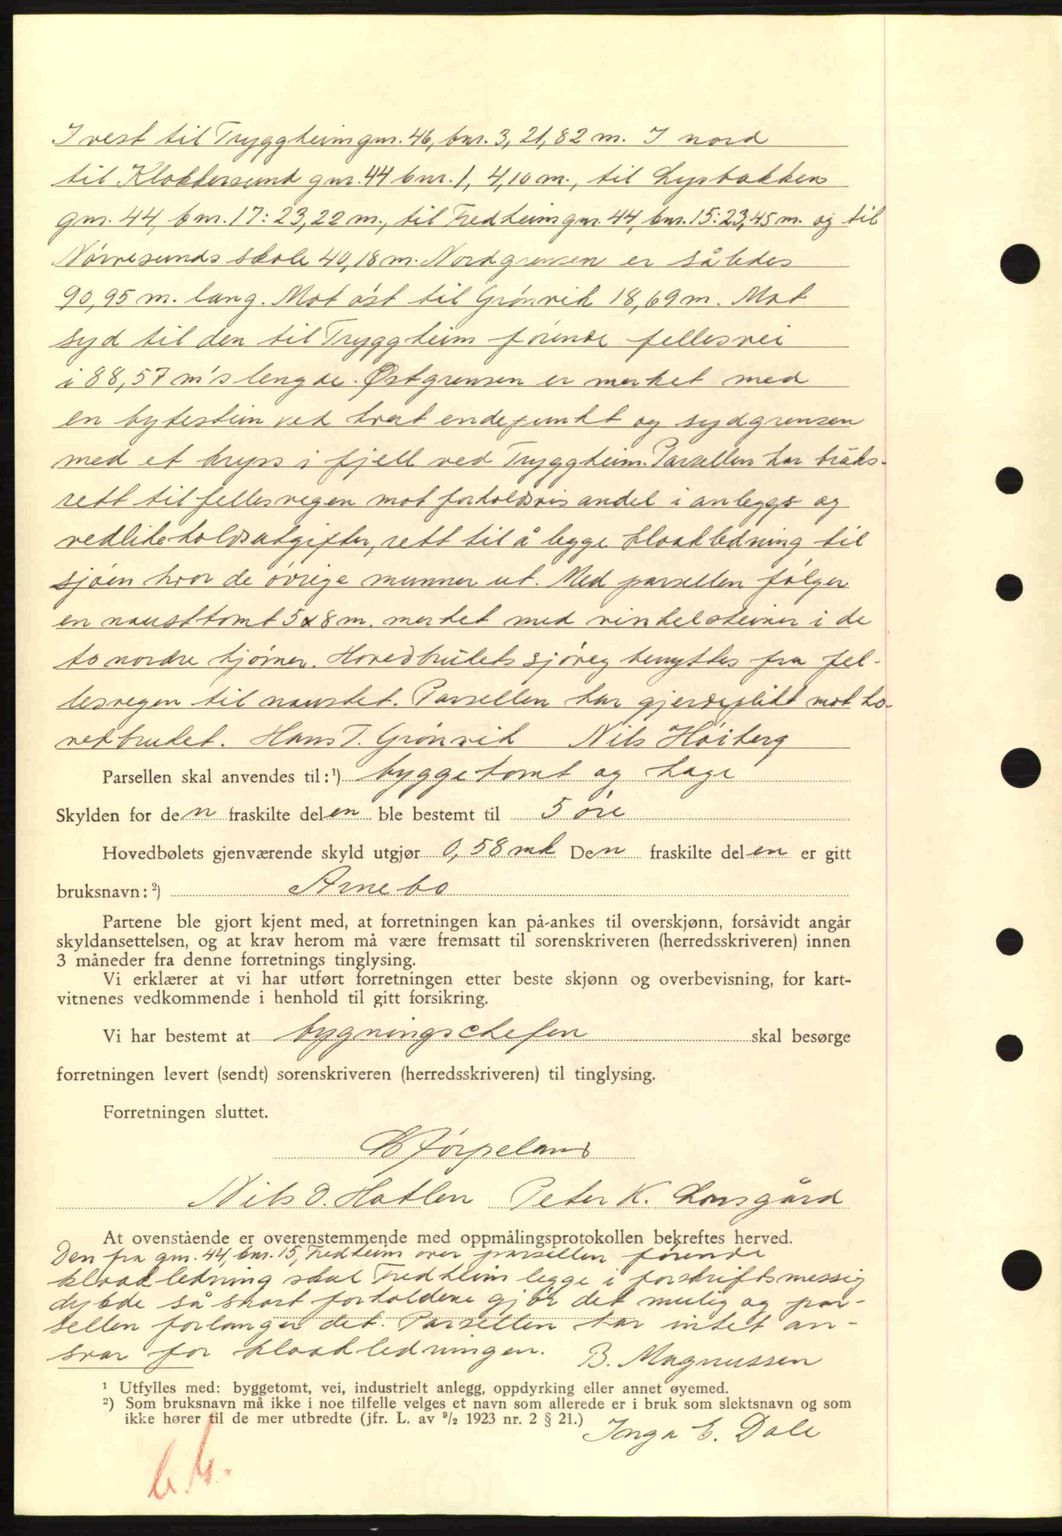 I vest til Tryggheim gnr. 46, bnr. 3, 21,82 m. I nord
til Klokkersund gnr. 44 bnr. 1, 4,10 m., til Lysbakken
gnr. 44, bnr. 17: 23,22 m., til Fredheim gnr. 44, bnr. 15: 23,45 m. og til
Nørvesunds skole 40,18 m. Nordgrensen er således
90,95 m. lang. Mot øst til Grønvik 18,69 m. Mot
syd til den til Tryggheim førende fellesvei
i 88,57 m's lengde. Østgrensen er merket med
en bytestein ved hvert endepunkt og sydgrensen
med et kryss i fjell ved Tryggheim. Parsellen har bruks-
rett til fellesvegen mot forholdsvis andel i anleggs og
vedlikeholdsutgifter, rett til å legge kloakledning til
sjøen hvor de øvrige munner ut. Med parsellen følger
en nausttomt 5x8 m. merket med vinkelsteiner i de
to nordre hjørner. Hovedbrukets sjøveg benyttes fra fel-
lesvegen til naustet. Parsellen har gjerdeplikt mot ho-
vedbruket. Hans T. Grønvik Nils Høiberg
Parsellen skal anvendes til:¹) byggetomt og hage
Skylden for den fraskilte delen ble bestemt til 5 øre
Hovedbølets gjenværende skyld utgjør 0,58 mk Den fraskilte delen er gitt
bruksnavn:²) Arnebo
Partene ble gjort kjent med, at forretningen kan på-ankes til overskjønn, forsåvidt angår
skyldansettelsen, og at krav herom må være fremsatt til sorenskriveren (herredsskriveren) innen
3 måneder fra denne forretnings tinglysing.
Vi erklærer at vi har utført forretningen etter beste skjønn og overbevisning, for kart-
vitnenes vedkommende i henhold til gitt forsikring.
Vi har bestemt at bygningschefen skal besørge
forretningen levert (sendt) sorenskriveren (herredsskriveren) til tinglysing.
Forretningen sluttet.
Jørpeland
Nils O. Hatlen Peter K. Longård
At ovenstående er overenstemmende med oppmålingsprotokollen bekreftes herved.
Den fra gnr. 44, bnr. 15, Fredheim over parsellen førende
kloakledning skal Fredheim legge i forskriftsmessig
dybde så snart forholdene gjør det mulig og par-
sellen forlanger det. Parsellen har intet an-
svar for kloakledningen. B. Magnussen
¹ Utfylles med: byggetomt, vei, industrielt anlegg, oppdyrking eller annet øyemed.
²) Som bruksnavn må ikke i noe tilfelle velges et navn som allerede er i bruk som slektsnavn og som
ikke hører til de mer utbredte (jfr. L. av ⁹/₂ 1923 nr. 2 § 21.)
Inga E. Dale